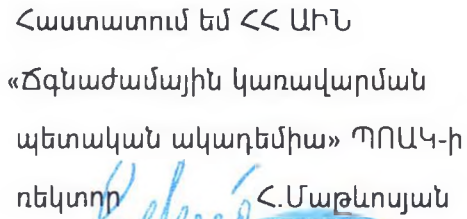 Հաստատում եմ ՀՀ ԱԻՆ
«Ճգնաժամային կառավարման
պետական ակադեմիա» ՊՈԱԿ-ի
ռեկտոր Հ.Մաթևոսյան